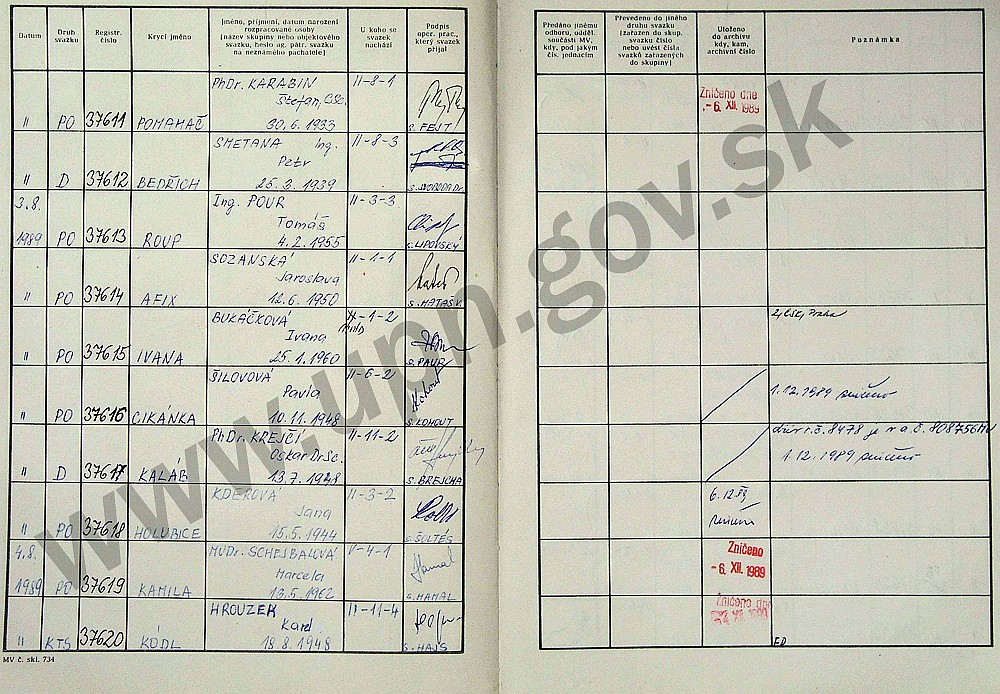 Datum
Druh svazku
Registr. číslo
Krycí jméno
Jméno, příjmení, datum narození
rozpracované osoby
(název skupiny nebo objektového
svazku, heslo ag. pátr. svazku
na neznámého pachatele)
U koho se
svazek
nachází
Podpis
oper. prac.,
který svazek
přijal
Předáno jinému
odboru, odděl.
součásti MV,
kdy, pod jakým
čís. jednacím
Převedeno do jiného
druhu svazku
(zařazen do skup.
svazku číslo
nebo uvést čísla
svazků zařazených
do skupiny)
Uloženo
do archivu
kdy, kam,
archivní číslo
Poznámka
PhDr. KARABIN II-8-1
Štefan, CSc.
" PO 37611 POMAHAČ 30.6.1933 s. FEJT
Zničeno dne
-6. XII. 1989
SMETANA Ing. II-8-3
Petr
" D 37612 BEDŘICH 25.3.1939 s. SVOBODA Dr.
3.8. Ing. POUR II-3-3
Tomáš
1989 PO 37613 ROUP 4.2.1955 s. LIPOVSKÝ
SOZANSKÁ II-1-1
Jaroslava
" PO 37614 AFIX 12.6.1950 s. MATAS V.
BUKÁČKOVÁ II-1-2
Ivana
" PO 37615 IVANA 25.1.1960 s. PAUR
Praha
ŠILOVOVÁ II-6-2
Pavla
" PO 37616 CIKÁNKA 10.11.1948 s. KOHOUT
1.12.1989 zničeno
PhDr. KREJČÍ II-11-2
Oskar DrSc.
" D 37617 KALÁB 13.7.1948 s. BREJCHA
r.č. 8478 je v a.č. 808756 MV
1.12.1989 zničeno
KDEROVÁ II-3-2
Jana
" PO 37618 HOLUBICE 15.5.1944 s. ŠOLTÉS
6.12.89
zničen
4.8. MUDr. SCHEJBALOVÁ V-4-1
Marcela
1989 PO 37619 KAMILA 13.5.1962 s. HAMAL
Zničeno
-6. XII. 1989
HROUZEK II-11-4
Karel
" KTS 37620 KÓDL 18.8.1948 s. HAJŠ
Zničeno dne
XII. 1989
FD
MV č. skl. 734
www.upn.gov.sk